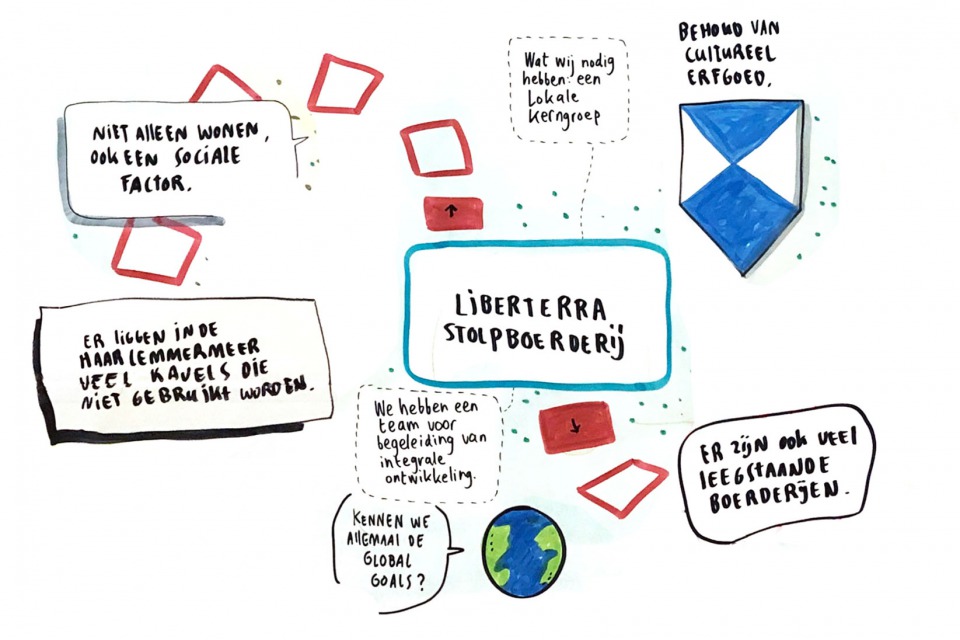 BEHOUD VAN
CULTUREEL
ERFGOED.
Wat wij nodig
hebben: een
Lokale
kerngroep
NIET ALLEEN WONEN,
OOK EEN SOCIALE
FACTOR.
LIBERTERRA
STOLPBOERDERIJ
ER LIGGEN IN DE
HAARLEMMERMEER
VEEL KAVELS DIE
NIET GEBRUIKT WORDEN.
We hebben een
team voor
begeleiding van
integrale
ontwikkeling.
ER ZIJN OOK VEEL
LEEGSTAANDE
BOERDERIJEN.
KENNEN WE
ALLEMAAL DE
GLOBAL
GOALS?